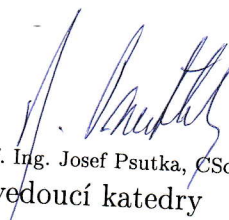 . Ing. Josef Psutka, CSc
vedoucí katedry